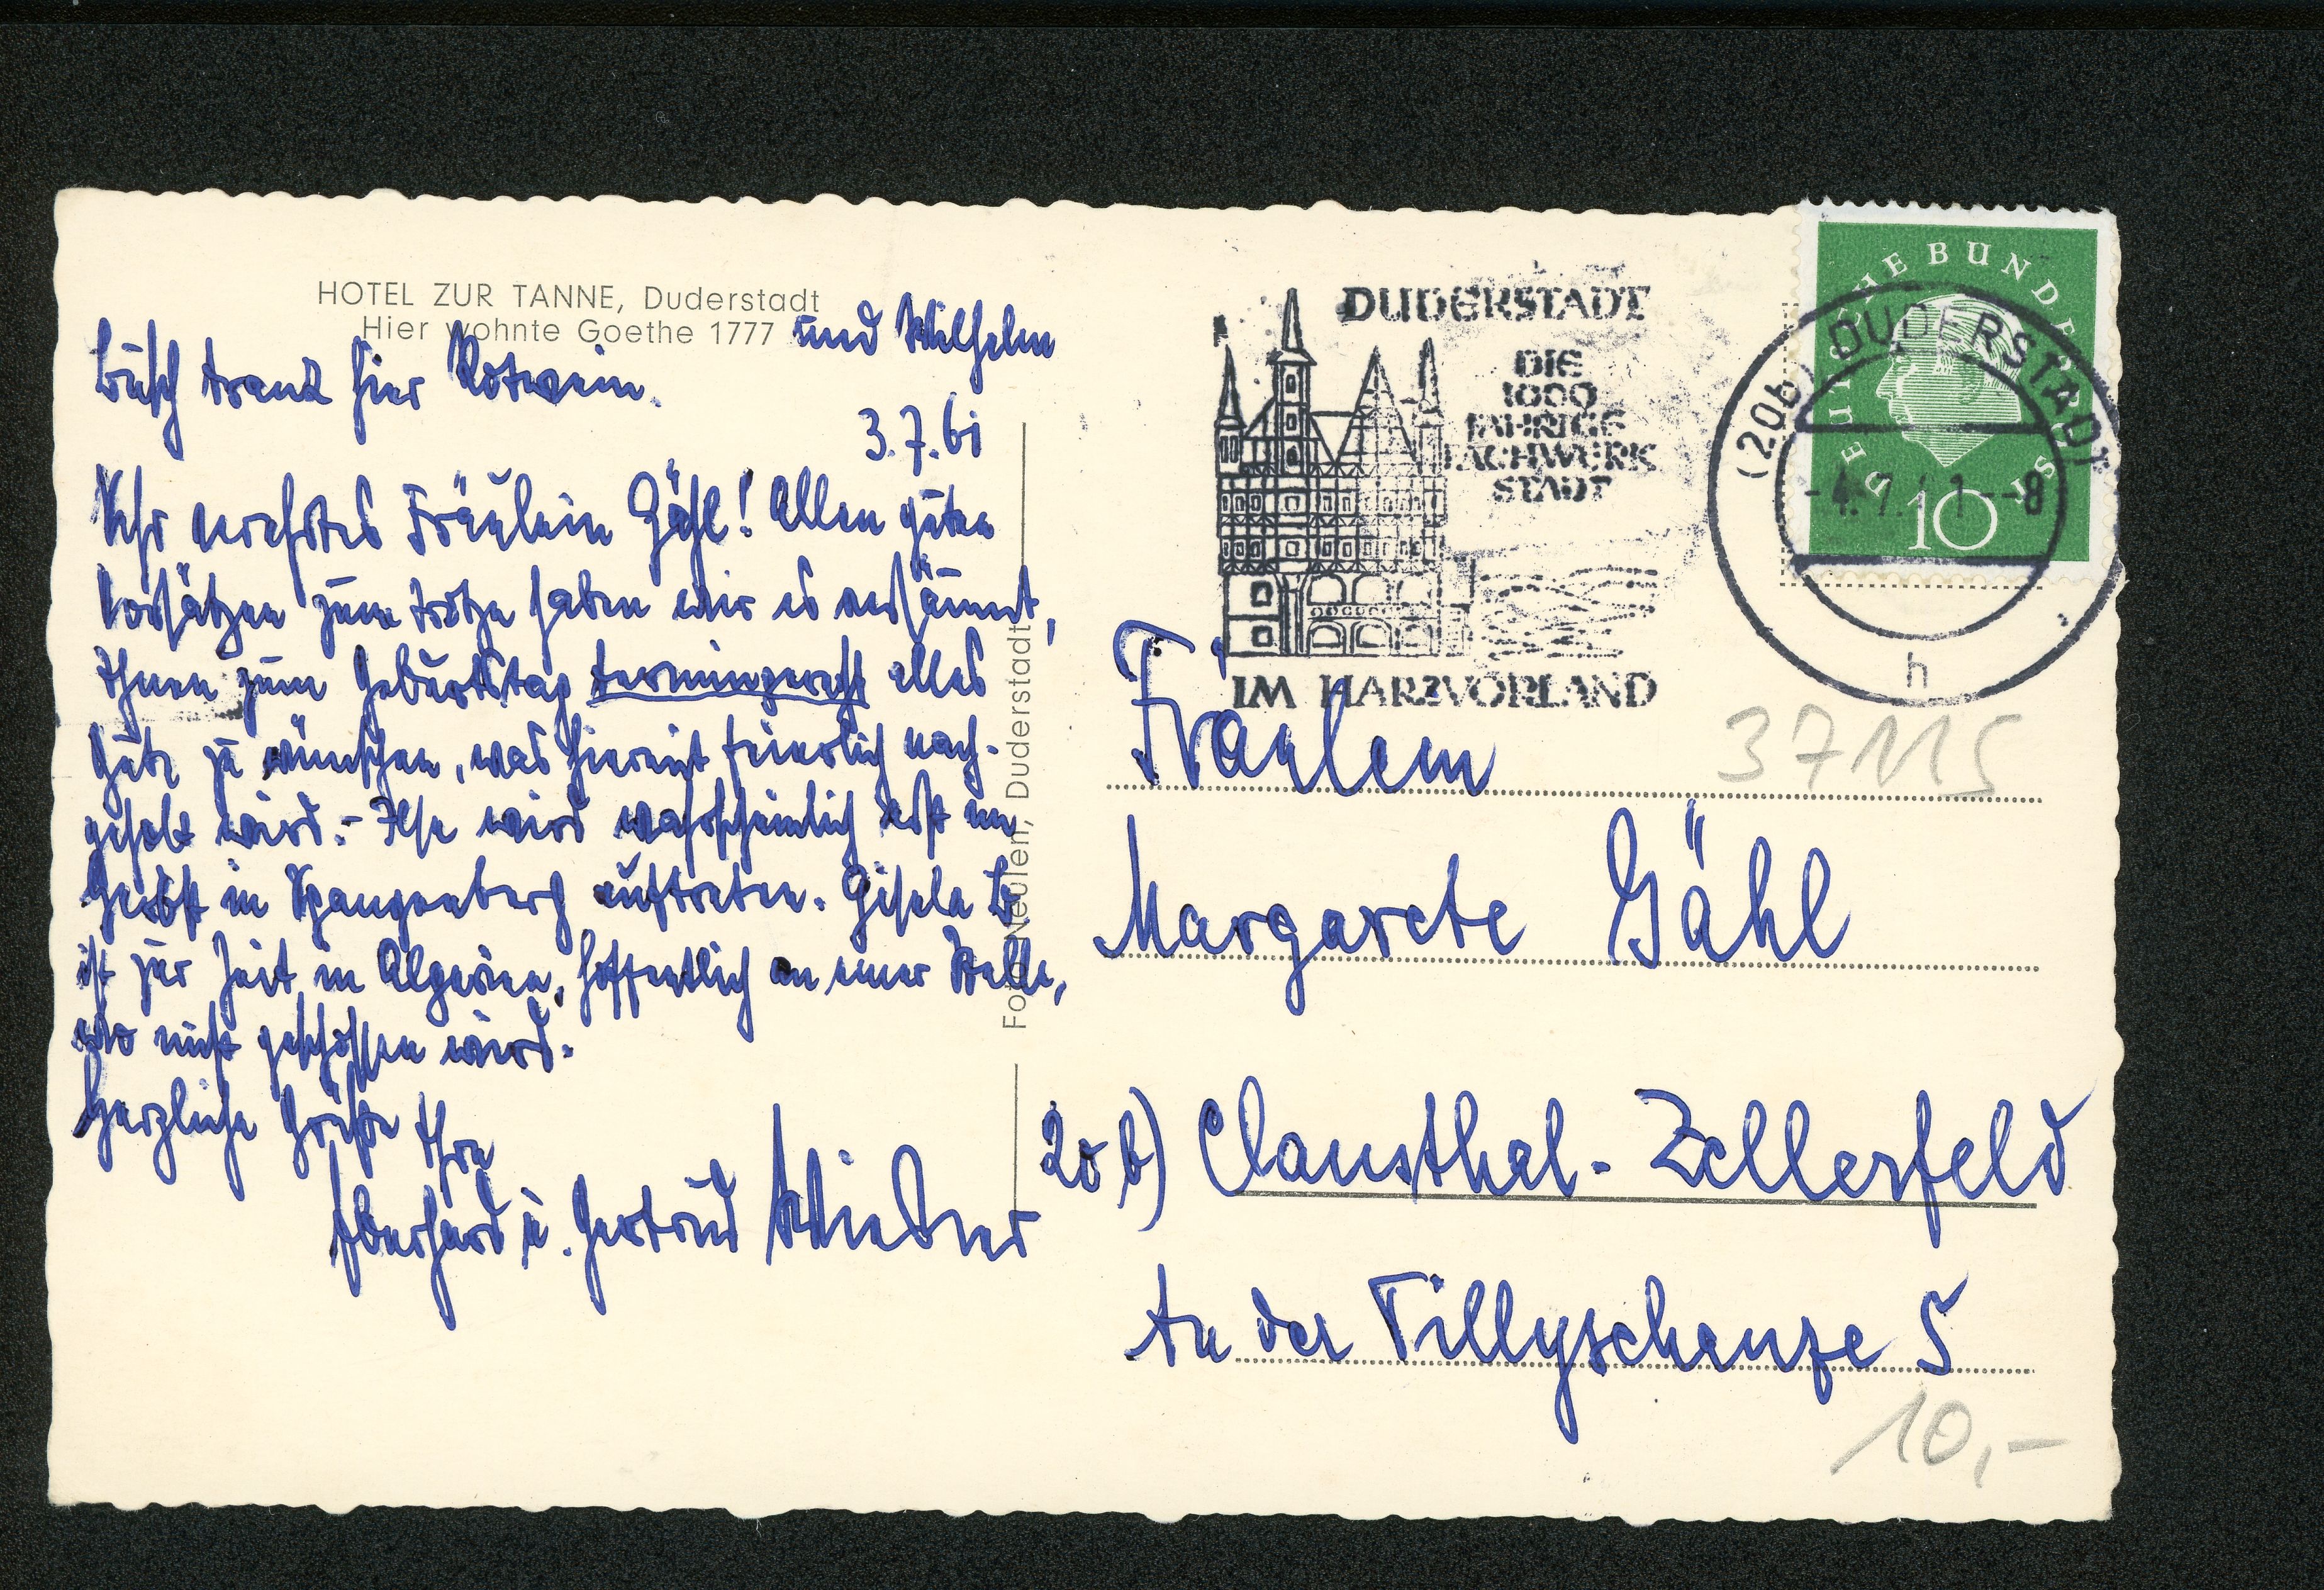 HOTEL ZUR TANNE, Duderstadt
Hier wohnte Goethe 1777
und Wilhelm
Busch trank hier Rotwein.
3.7.61
Sehr verehrtes Fräulein Gähl! Allen guten
Vorsätzen zum trotze haben wir es versäumt,
Ihnen zum Geburtstag termingerecht alles
Gute zu wünschen, was hiermit feierlich nach-
geholt wird.- Ilse wird wahrscheinlich erst im
Herbst in Spangenberg auftreten. Gisela
ist zur Zeit in Algerien, hoffentlich an einer Stelle,
wo nicht geschossen wird.
Herzliche Grüße Ihre
Eberhard u. Gertrud
Foto Neulen, Duderstadt
DUDERSTADT
DIE
1000
JÄHRIGE
FACHWERK
STADT
IM HARZVORLAND
DEUTSCHE BUNDESPOST
10
(20b) DUDERSTADT
-4.7.61--8
h
Fräulein
37115
Margarete Gähl
20b) Clausthal-Zellerfeld
An der Tillyschanze 5
10,-